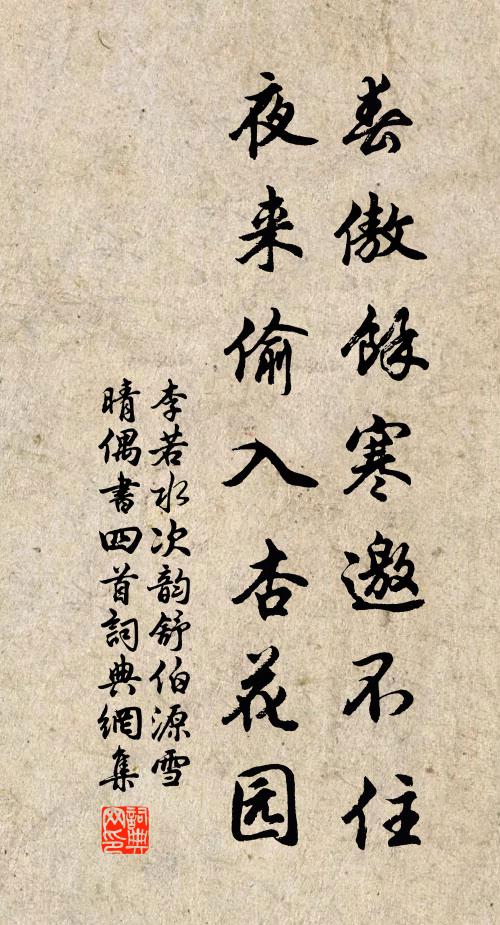 春傲餘寒邀不住
夜来偷入杏花园
李若水次韵舒伯源雪
晴偶書四首詞典網集
詞典
网印